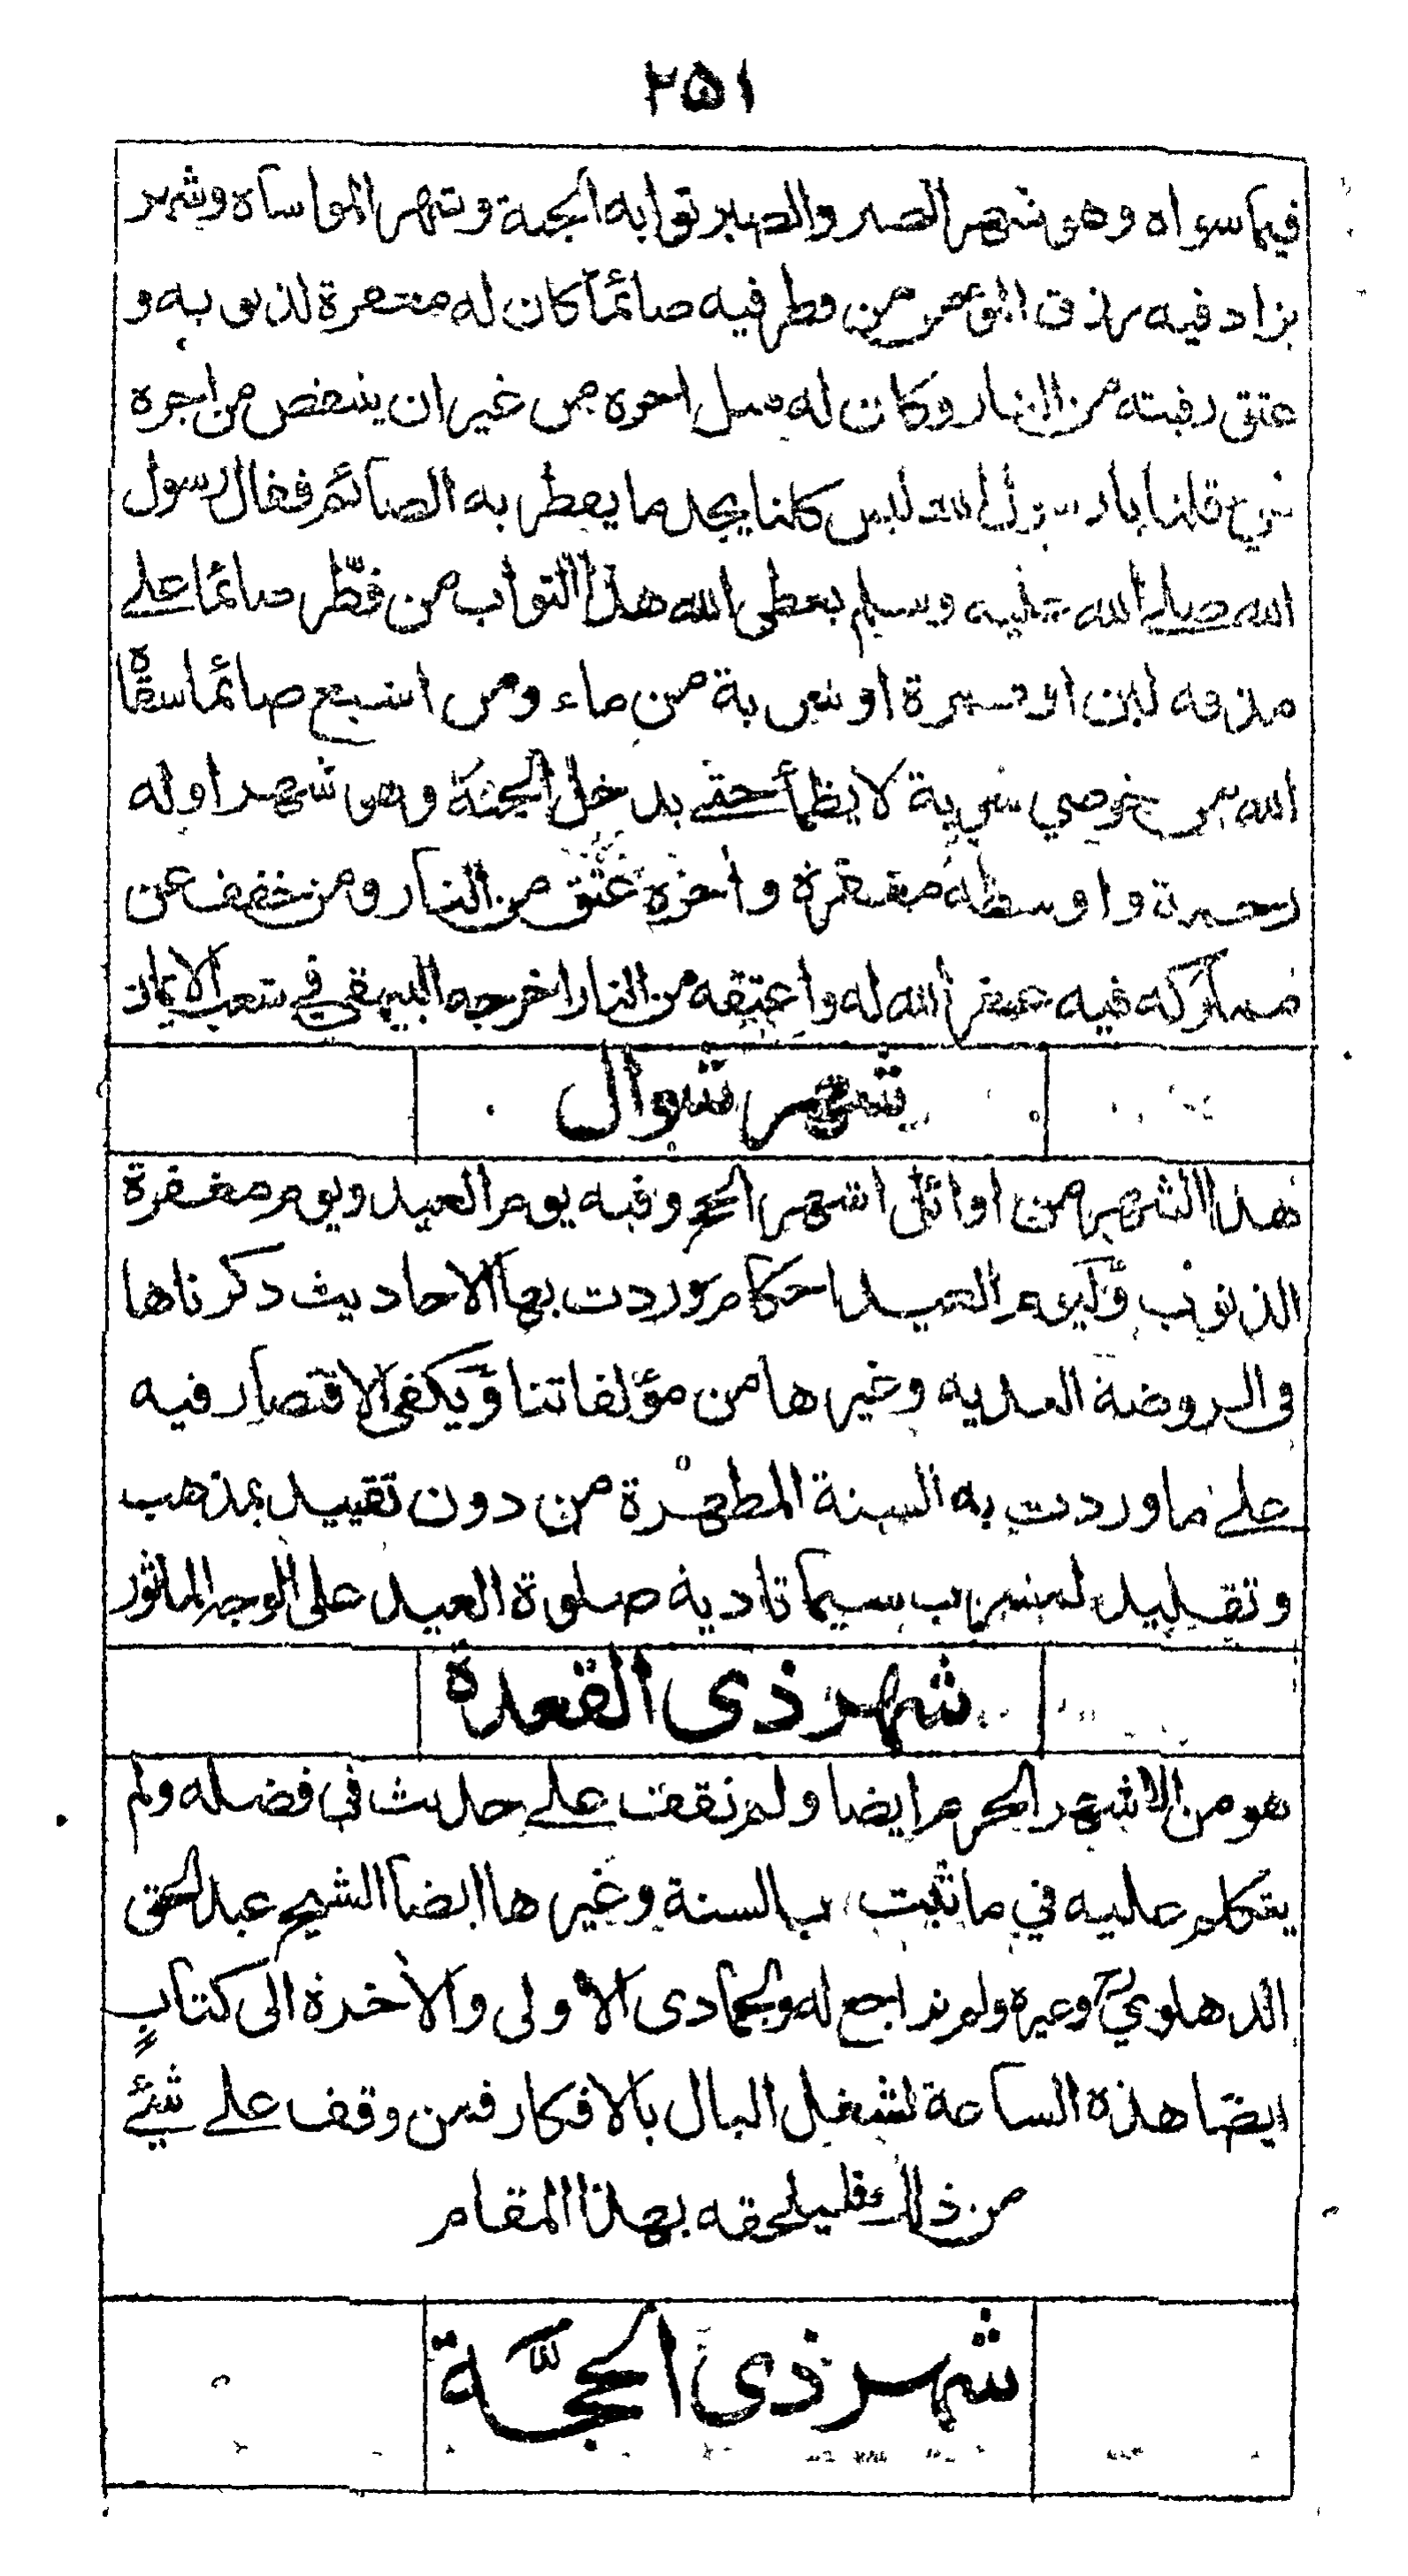 ٢٥١
فيما سواه وهو شهر الصبر والصبر ثوابه الجنة وشهر المواساة وشهر
يزاد فيه رزق المؤمن من فطر فيه صائما كان له مغفرة لذنوبه و
عتق رقبته من النار وكان له مثل اجره من غير ان ينقص من اجره
شئ قلنا يا رسول الله ليس كلنا يجد ما يفطر به الصائم فقال رسول
الله صلے الله عليه وسلم يعطى الله هذا الثواب من فطّر صائما علے
مذقه لبن او تمرة او شربة من ماء ومن اشبع صائما سقاه
الله من حوضي شربة لا يظمأ حتے يدخل الجنة وهو شهر اوله
رحمة واوسطه مغفرة واخره عتق من النار ومن خفف عن
مملوكه فيه غفر الله له واعتقه من النار اخرجه البيهقي في شعب الايمان
شهر شوال
هذا الشهر من اوائل اشهر الحج وفيه يوم العيد ويوم مغفرة
الذنوب وليوم العيد احكام وردت بها الاحاديث ذكرناها
فى الروضة الندية وغيرها من مؤلفاتنا ويكفى الاقتصار فيه
علے ما وردت به السنة المطهرة من دون تقييد بمذهب
وتقليد لمشرب سيما تادية صلوة العيد على الوجه الماثور
شهر ذى القعدة
هو من الاشهر الحرم ايضا ولم نقف علے حديث في فضله ولم
يتكلم عليه في ما ثبت بالسنة وغيرها ايضا الشيخ عبد الحق
الدهلوي وغيره ولم نراجع له ولجمادى الاولى والاخرة الى كتاب
ايضا هذه الساعة لشغل البال بالافكار فمن وقف علے شئے
من ذلك فليلحقه بهذا المقام
شهر ذى الحجّة